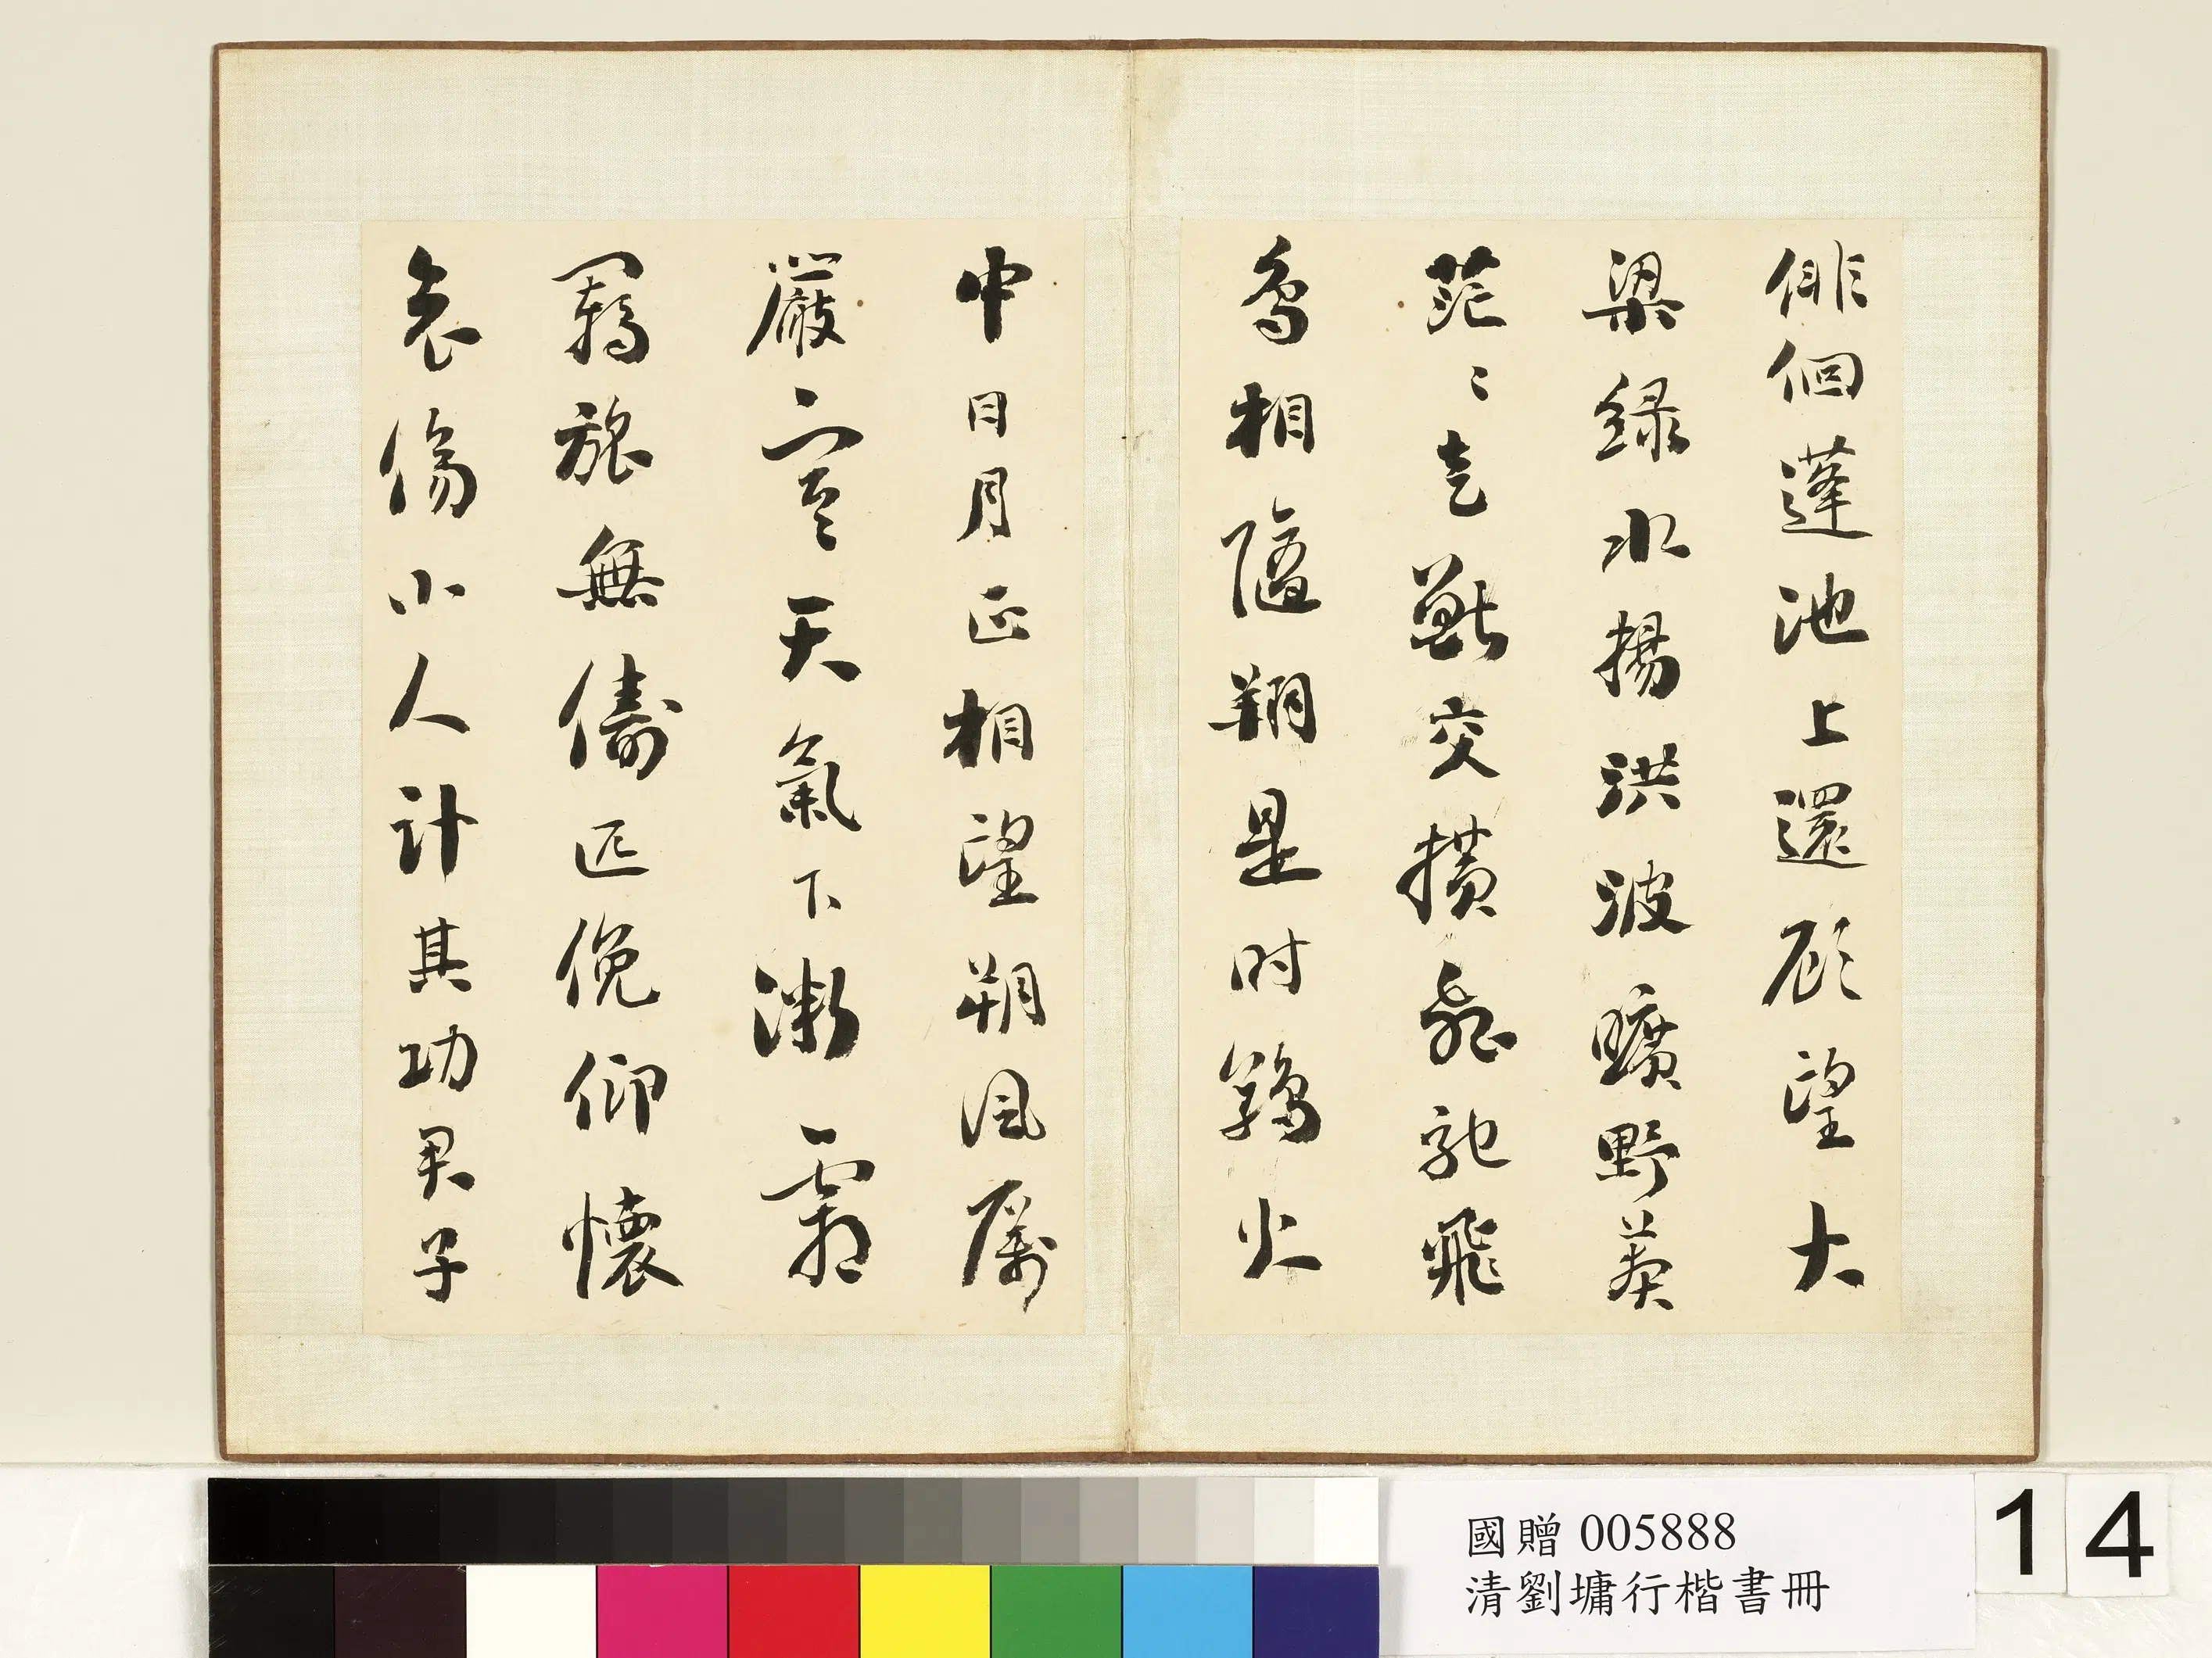 俳佪蓬池上還顧望大
梁綠水揚洪波曠野莽
茫〻走獸交橫飛馳飛
鳥相隨翔是时鶉火
中日月正相望朔風厲
嚴寒天氣下微霜
羇旅無儔匹俛仰懷
哀傷小人計其功君子
國贈 005888
清劉墉行楷書冊
14